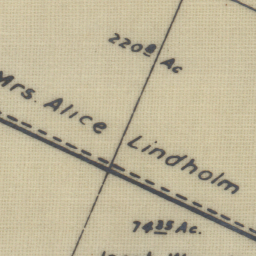 220⁸ Ac
Mrs. Alice Lindholm
74³⁵ Ac.